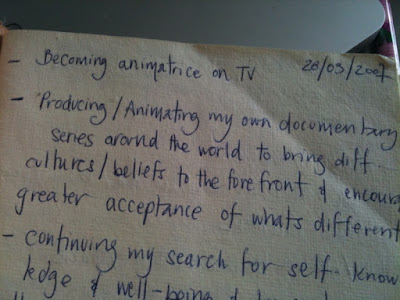 - Becoming animatrice on TV 28/03/2007
- Producing/Animating my own documentary
series around the world to bring diff.
cultures/beliefs to the forefront & encour
greater acceptance of whats different
- continuing my search for self-know
ledge & well-being &